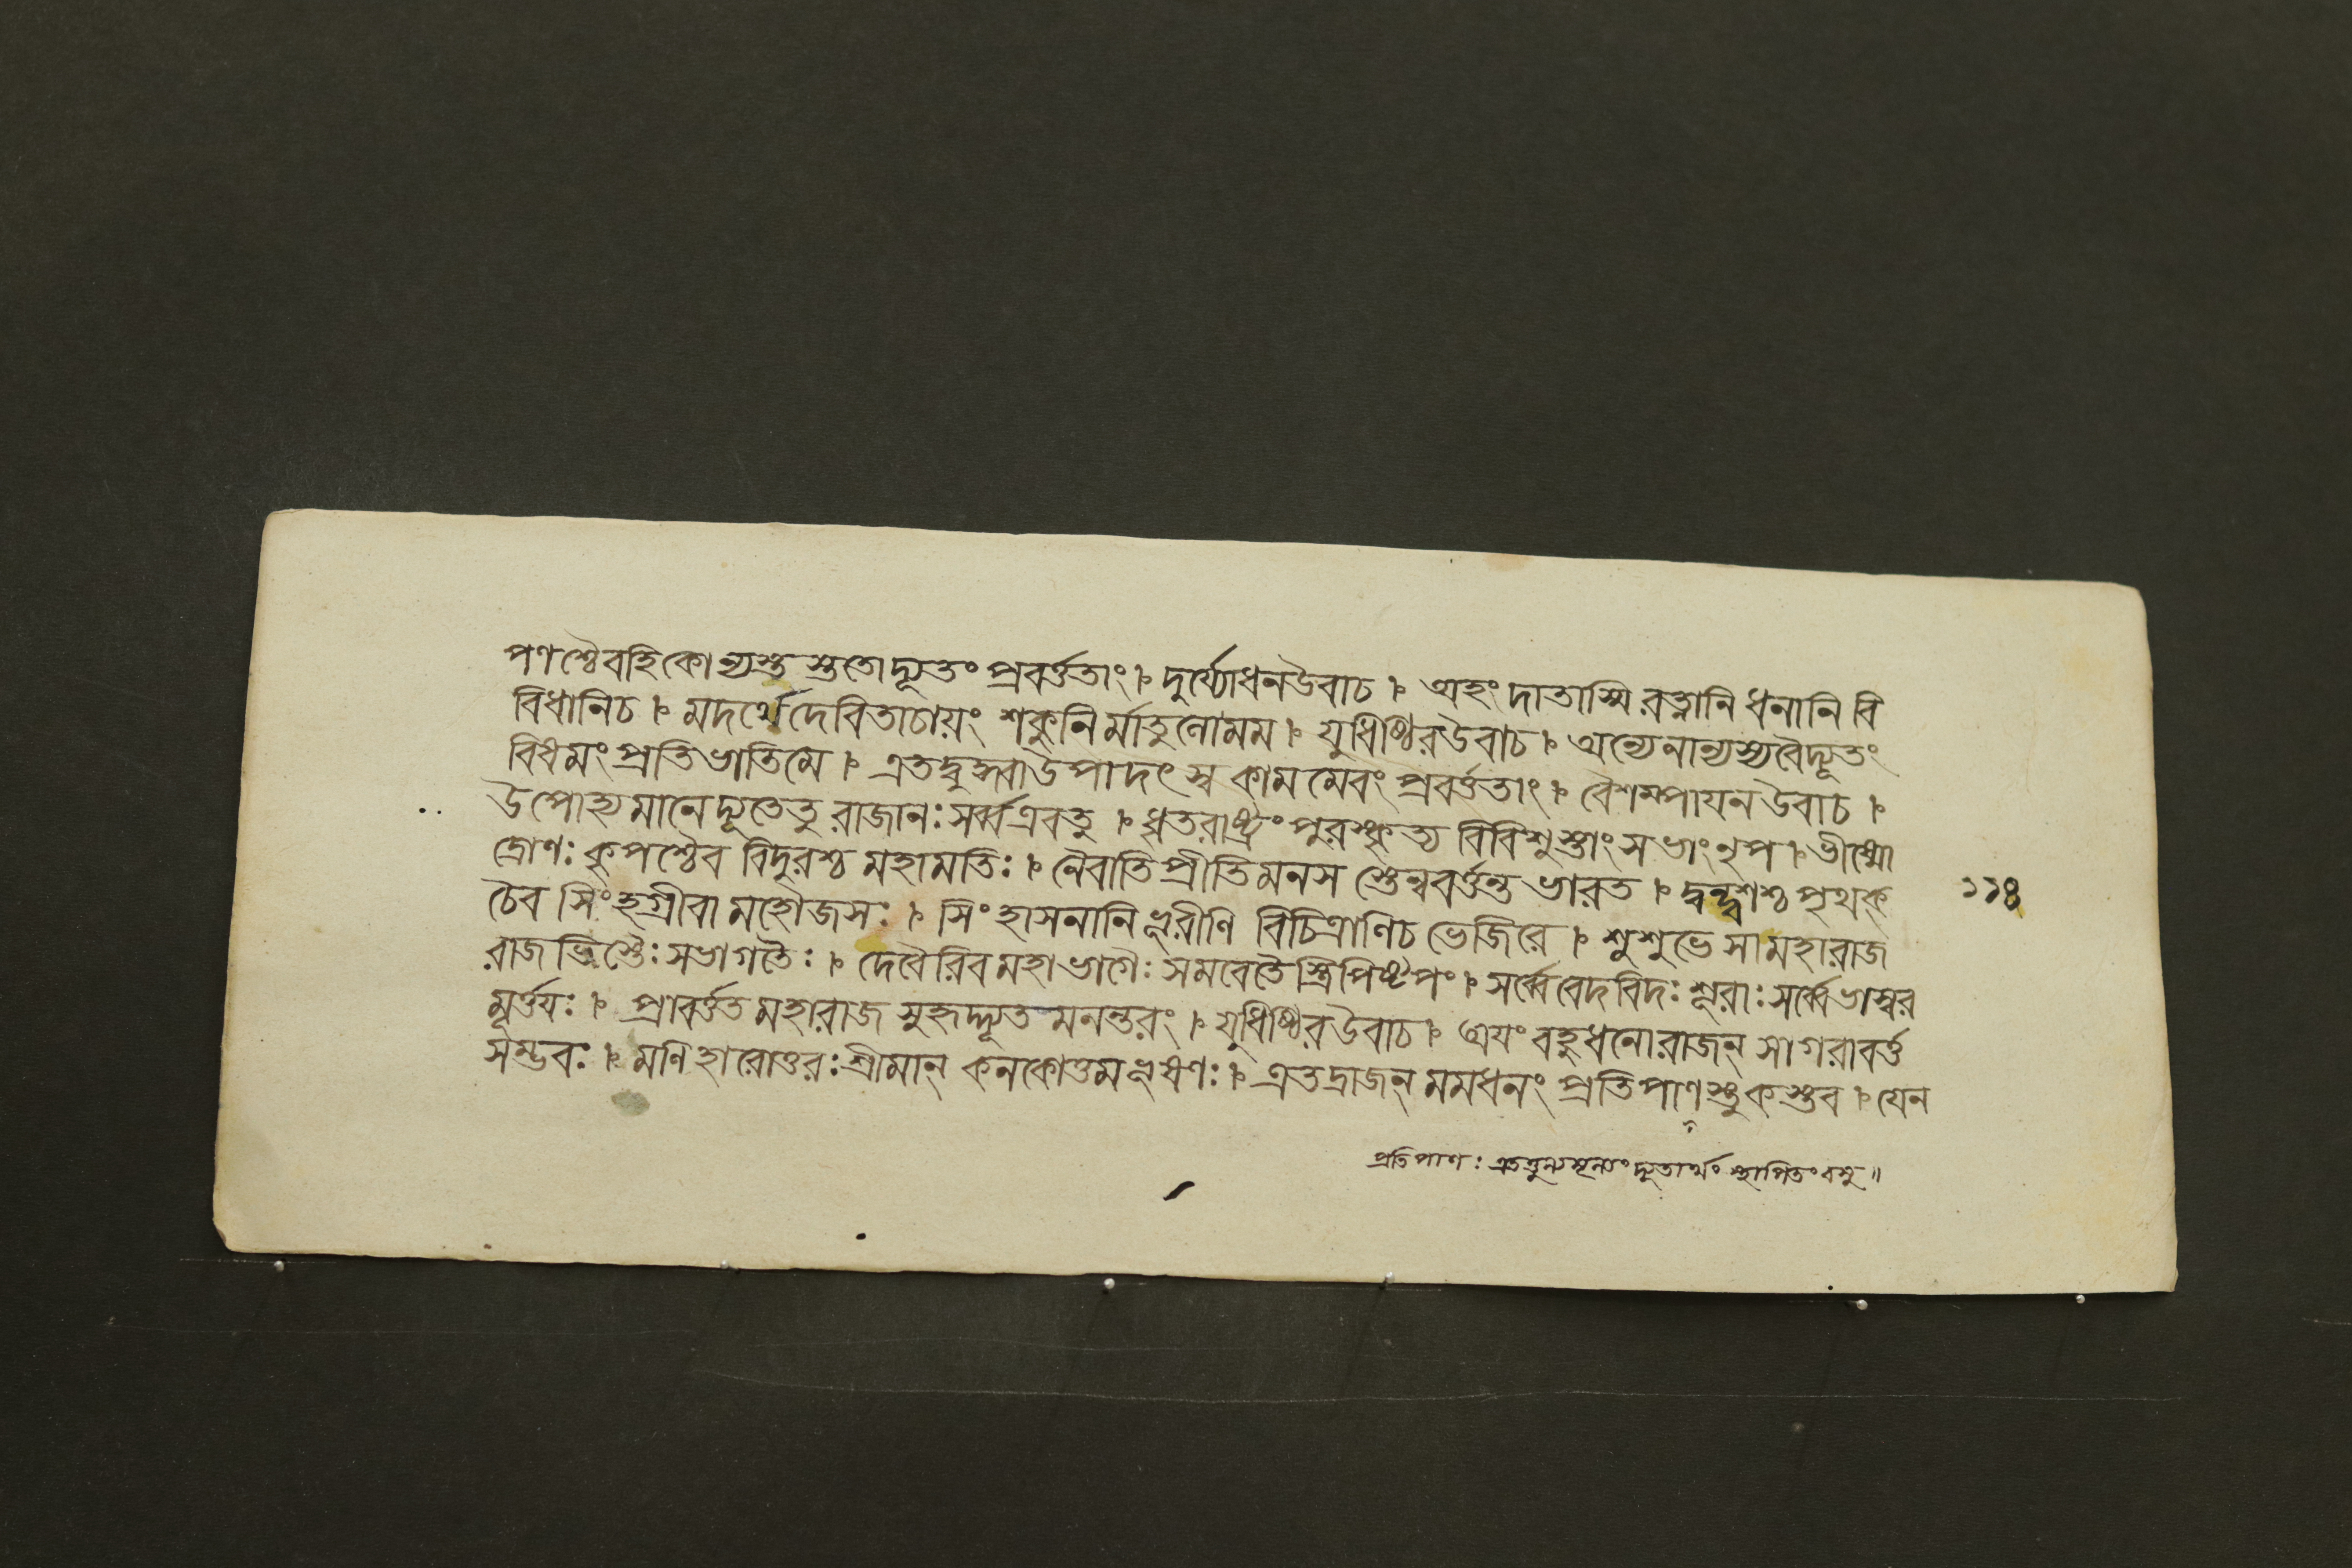 পণশ্চৈবহিকোন্যস্তু স্ততোদ্যূতং প্রবর্ত্ততাং । দুর্য্যোধনউবাচ । অহং দাতাস্মি রত্নানি ধনানি বি
বিধানিচ । মদর্থে দেবিতাচায়ং শকুনি র্মাতুলোমম । যুধিষ্ঠিরউবাচ । অন্যেনান্যস্যবৈদ্যূতং
বিষমং প্রতিভাতিমে । এতদ্বুদ্ধ্বাউপাদৎস্ব কাম মেবং প্রবর্ত্ততাং । বৈশম্পায়ন উবাচ ।
উপোহ্যমানে দ্যূতেতু রাজানঃ সর্ব্বএবতু । ধৃতরাষ্ট্রং পুরস্কৃত্য বিবিশুস্তাং সভাং নৃপ । ভীষ্মো
দ্রোণঃ কৃপশ্চৈব বিদুরশ্চ মহামতিঃ । নৈবাতিপ্রীতিমনস স্তেন্ববর্ত্তন্ত ভারত । দ্বন্দ্বশশ্চ পৃথক্
চৈব সিংহগ্রীবা মহৌজসঃ । সিংহাসনানি ভূরীণি বিচিত্রাণিচ ভেজিরে । শুশুভে সা মহারাজ
রাজভিস্তৈঃ সভাগতৈঃ । দেবৈরিব মহাভাগৈঃ সমবেতৈ স্ত্রিপিষ্টপং । সর্ব্বেবেদবিদঃ শূরাঃ সর্ব্বেভাস্বর
মূর্ত্তয়ঃ । প্রাবর্ত্তত মহারাজ সুহৃদ্দ্যূত মনন্তরং । যুধিষ্ঠিরউবাচ । অয়ং বহুধনোরাজন্ সাগরাবর্ত্ত
সম্ভবঃ । মণি হারোত্তরঃ শ্রীমান্ কনকোত্তমভূষণঃ । এতদ্রাজন্ মমধনং প্রতিপাণস্তুকস্তব । যেন
১১৪
প্রতিপাণঃ এতত্তুল্যমূল্যং দ্যূতার্থং স্থাপিতং বসু ॥